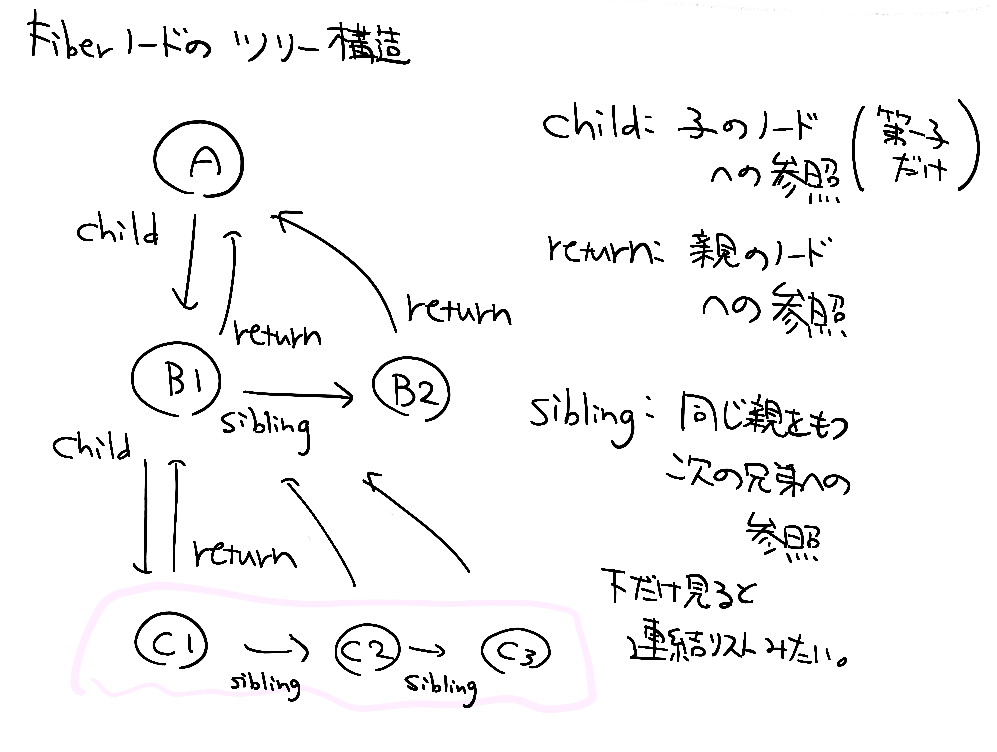 Fiberノードのツリー構造
A
child
return
return
B1
B2
sibling
child
return
C1
C2
C3
sibling
sibling
child: 子のノード
への参照
(第一子
だけ)
return: 親のノード
への参照
sibling: 同じ親をもつ
次の兄弟への
参照
下だけ見ると
連結リストみたい。